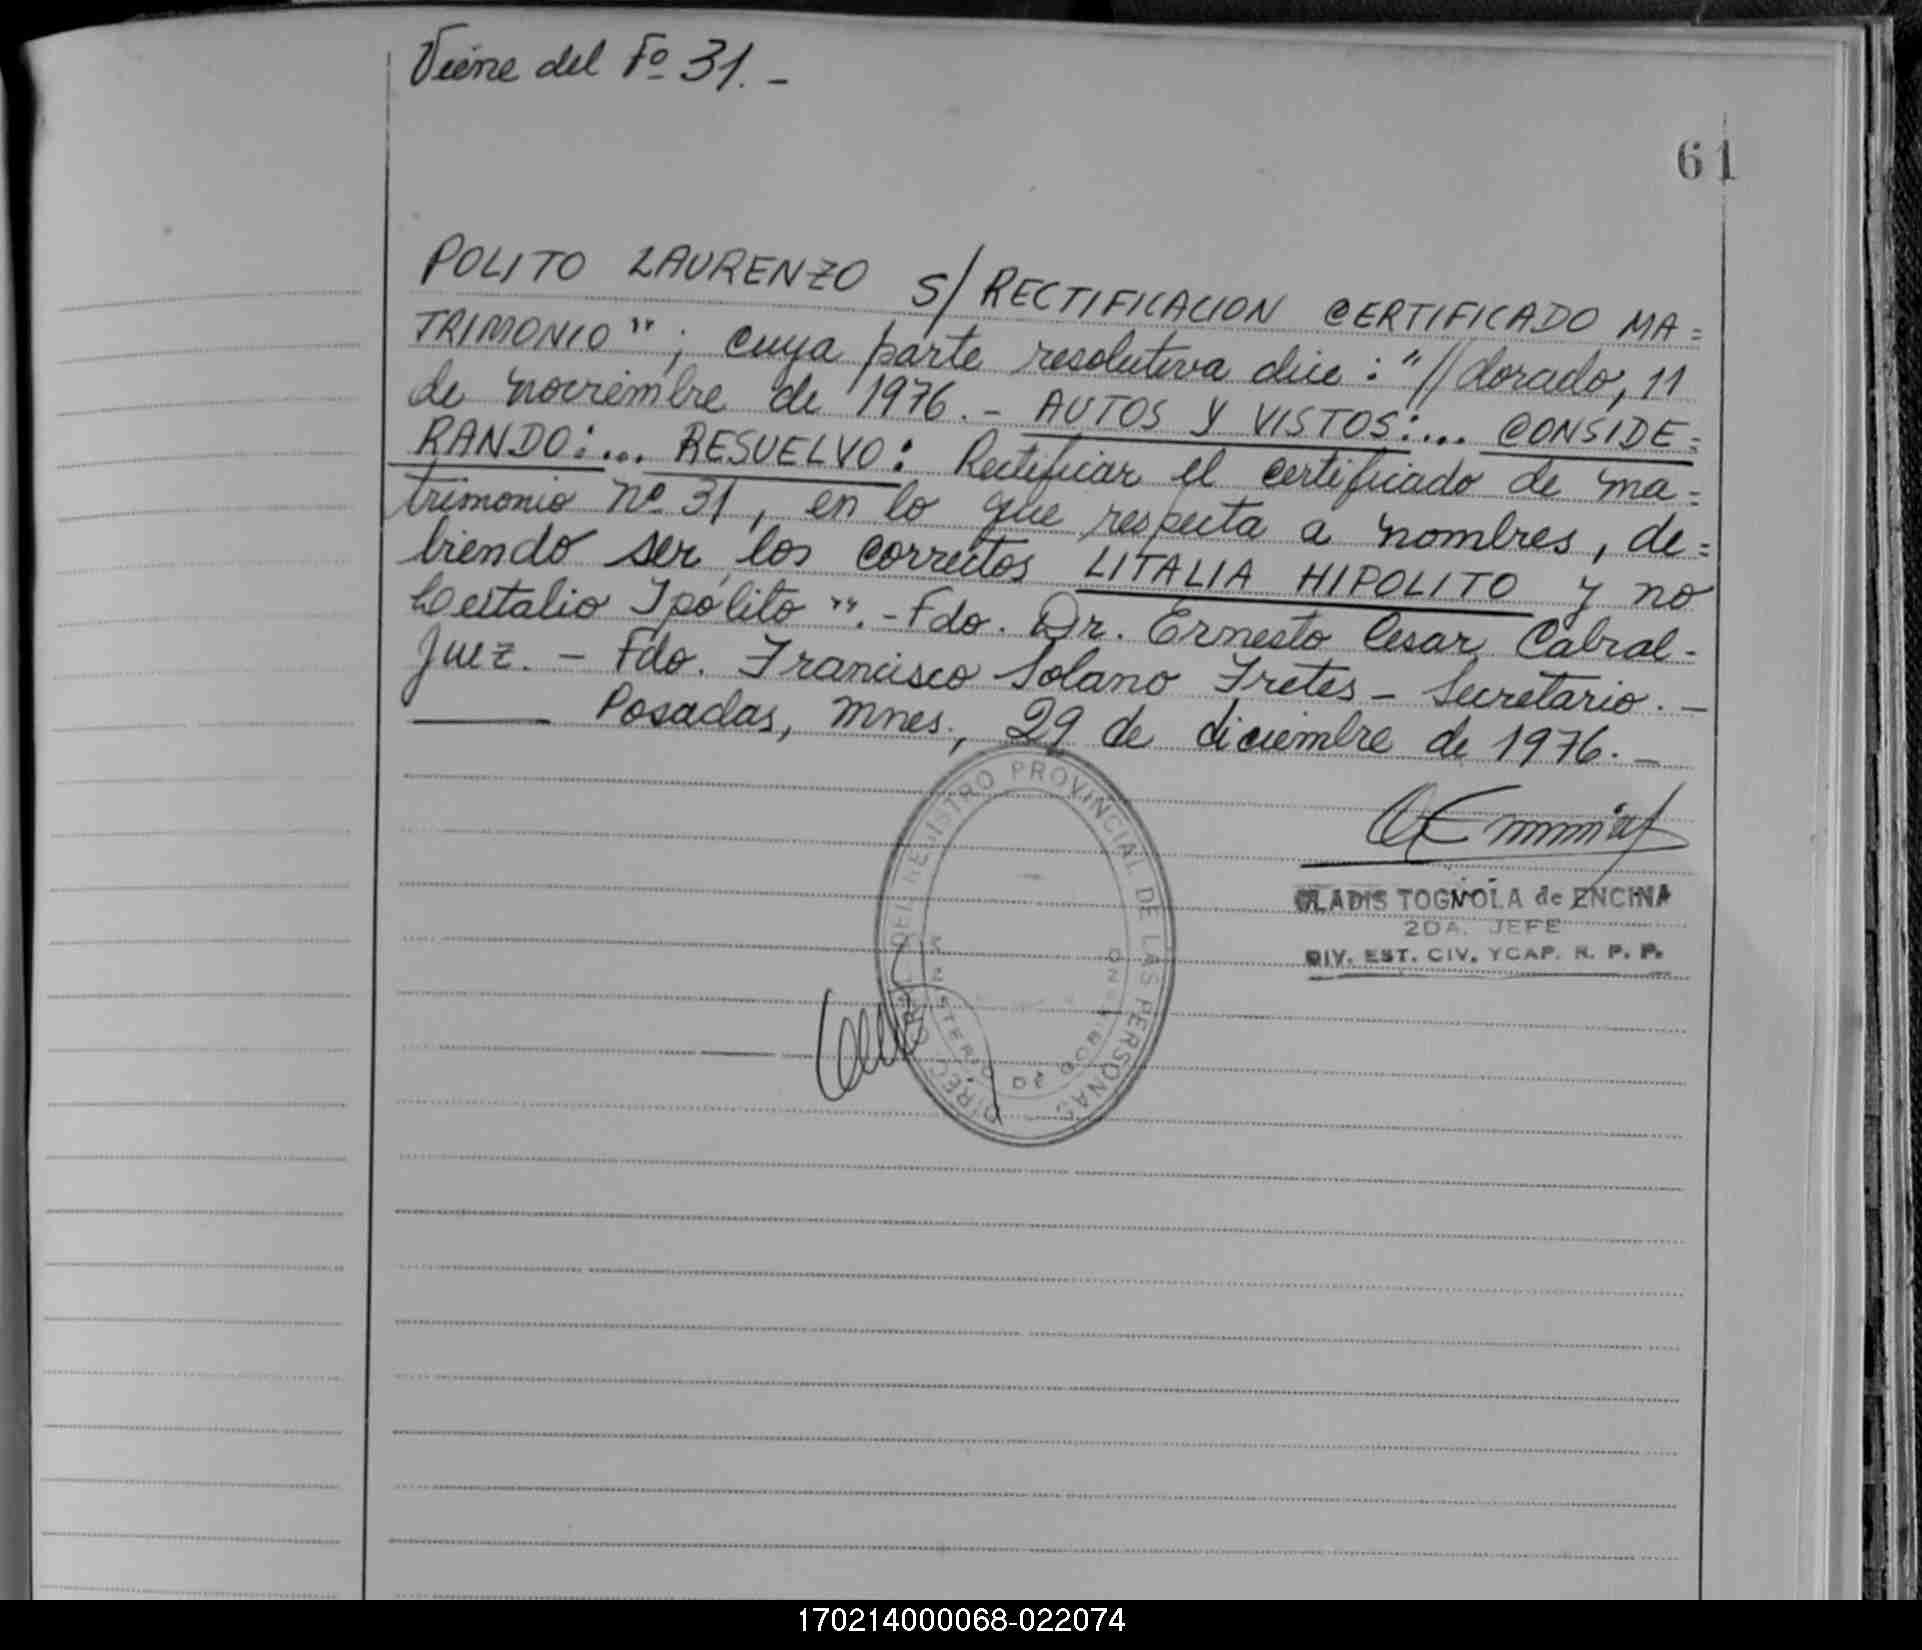 Viene del Fº 31.-
61
POLITO LAURENZO S/RECTIFICACION CERTIFICADO MA=
TRIMONIO"; cuya parte resolutiva dice: "//dorado, 11
de noviembre de 1976.- AUTOS Y VISTOS:... CONSIDE=
RANDO:... RESUELVO: Rectificar el certificado de ma=
trimonio nº 31, en lo que respecta a nombres, de=
biendo ser los correctos LITALIA HIPOLITO y no
Ipólito".-Fdo. Dr. Ernesto Cesar Cabral-
Juez.- Fdo. Francisco Solano Fretes- Secretario.-
Posadas, Mnes., 29 de diciembre de 1976.-
DIRECCION GRAL. DEL REGISTRO PROVINCIAL DE LAS PERSONAS
MINISTERIO DE GOBIERNO
GLADIS TOGNOLA de ENCINA
2DA. JEFE
DIV. EST. CIV. YCAP. R. P. P.
170214000068-022074